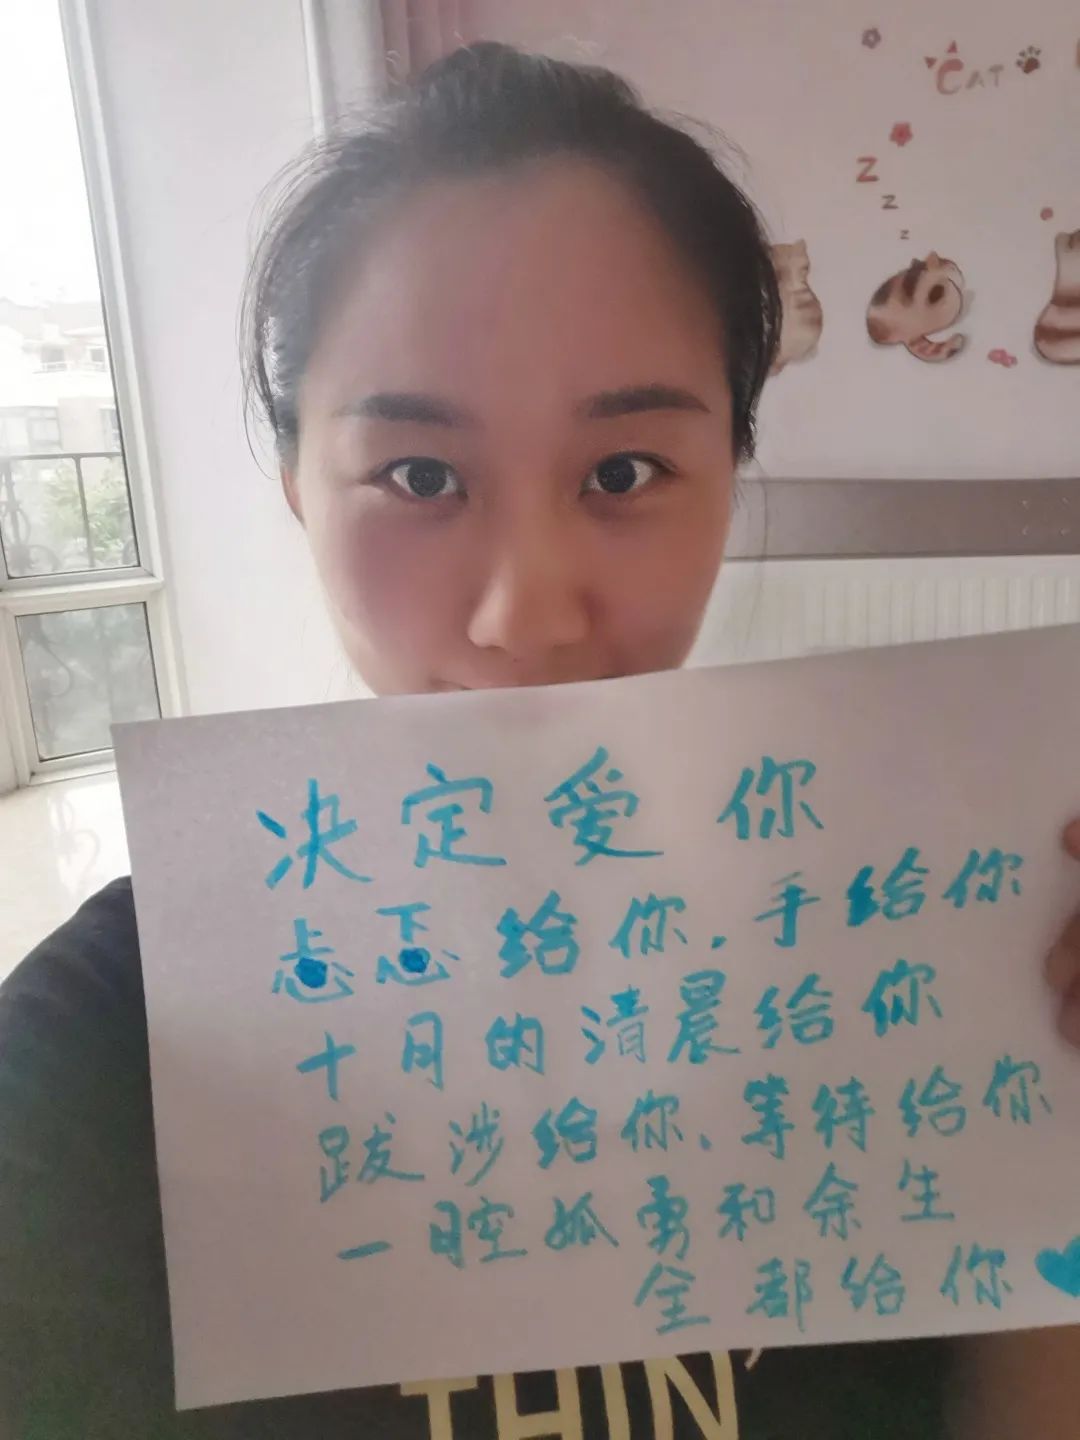 CAT
z
z
z
决定爱你
忐忑给你,手给你
十月的清晨给你
跋涉给你、等待给你
一腔孤勇和余生
全都给你
THIN'